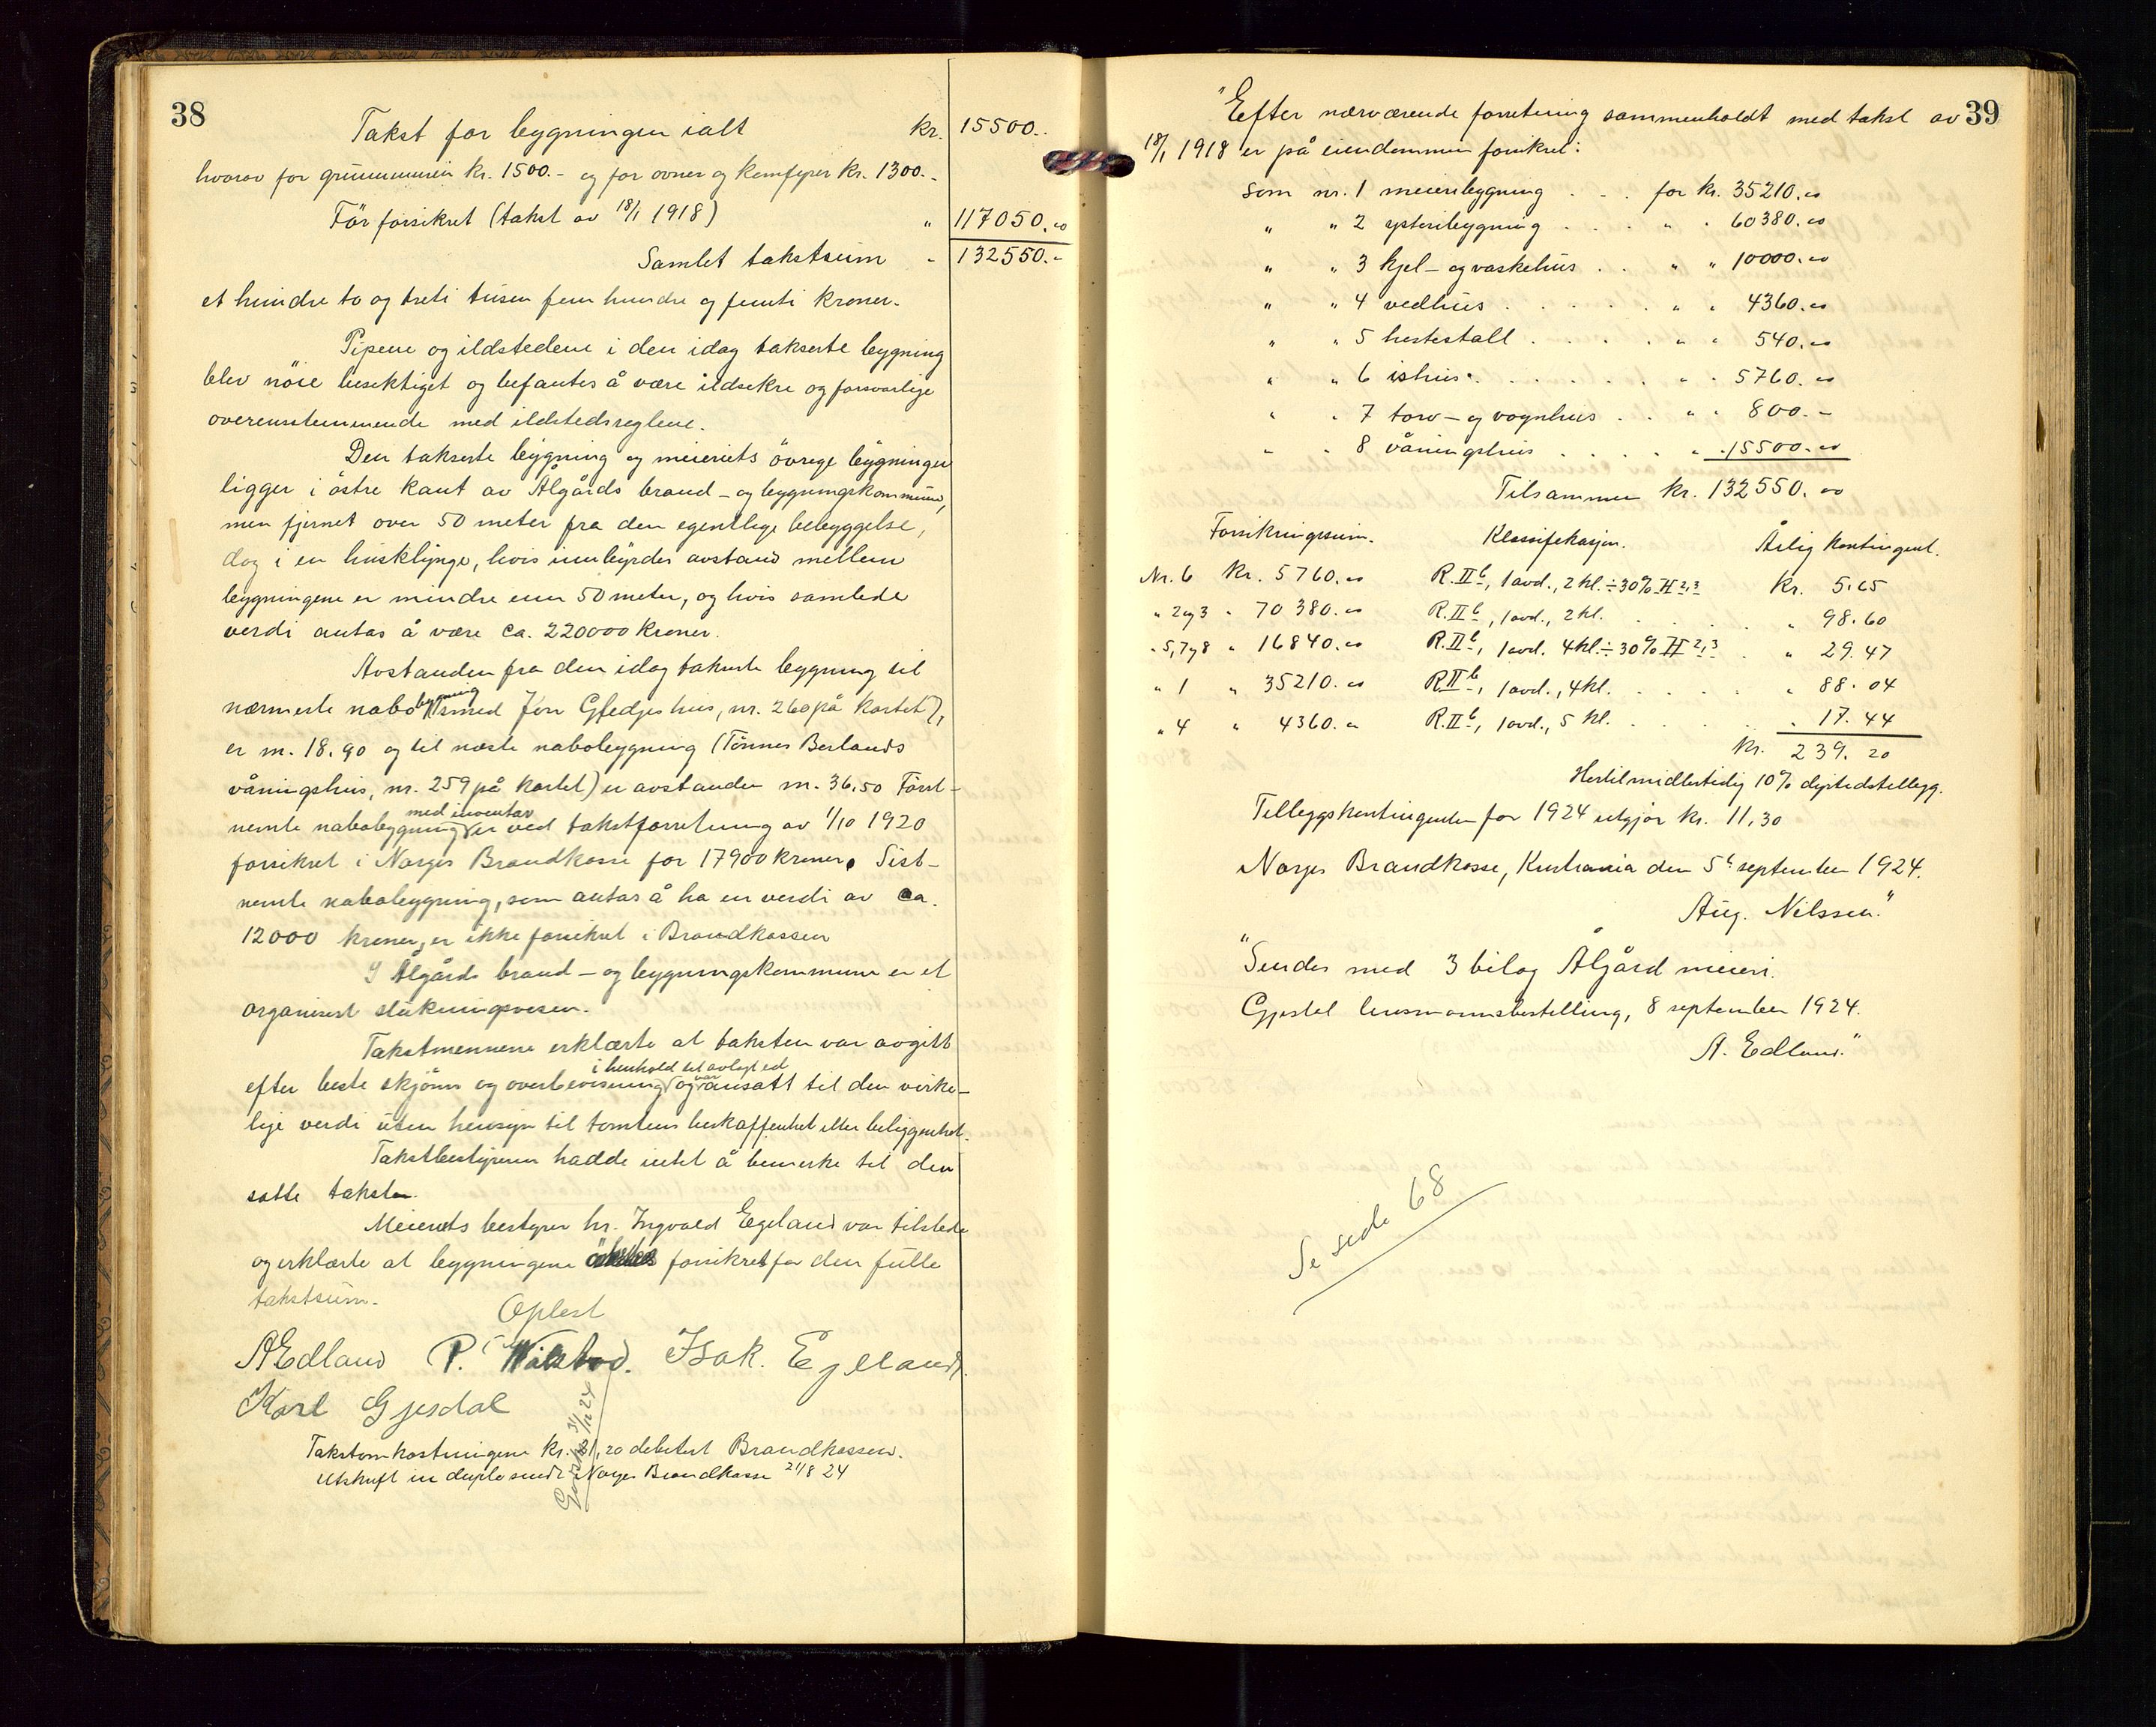 38
Takst for bygningen ialt kr. 15500.-
hvorav for grunnmuren kr. 1500.- og for ovner og komfyrer kr. 1300.-
Før forsikret (takst av 18/1 1918) " 117050.00
Samlet takstsum - 132550.-
et hundre to og treti tusen fem hundre og femti kroner.
Pipene og ildstedene i den idag takserte bygning
blev nöie besiktiget og befantes å være ildsikre og forsvarlige
overensstemmende med ildstedsreglene.
Den takserte bygning og meieriets övrige bygninger
ligger i östre kant av Ålgårds brand- og bygningskommune,
men fjernet over 50 meter fra den egentlige bebyggelse,
dog i en husklynge, hvis innbyrdes avstand mellem
bygningene er mindre enn 50 meter, og hvis samlede
verdi antas å være ca. 220000 kroner.
Avstanden fra den idag takserte bygning til
nærmeste nabobygning (smed Jon Gfedjes hus, nr. 260 på kartet),
er m. 18.90 og til næste nabobygning (Tönnes Berlands
våningshus, nr. 259 på kartet) er avstanden m. 36.50 Först-
nemte nabobygning med inventar er ved takstforretning av 1/10 1920
forsikret i Norges Brandkasse for 17900 kroner. Sist-
nemte nabobygning, som antas å ha en verdi av ca.
12000 kroner, er ikke forsikret i Brandkassen
I Ålgårds brand- og bygningskommune er et
organisert slukningsvesen.
Takstmennene erklærte at taksten var avgitt
efter beste skjönn og overbevisning i henhold til avlagt ed og var ansatt til den virke-
lige verdi uten hensyn til tomtens beskaffenhet eller beliggenhet.
Takstbestyreren hadde intet å bemerke til den
satte takster.
Meieriets bestyrer hr. Ingvald Egeland var tilstede
og erklærte at bygningene forsikret for den fulle
takstsum.
Oplest
AEdland P. Isak. Egeland.
Karl Gjesdal
Takstomkostningene kr. 20 debitert Brandkassen.
Utskrift in duplo sendt Norges Brandkasse 21/8 24
39
"Efter nærværende forretning sammenholdt med takst av
18/1 1918 er på eiendommen forsikret:
Som nr. 1 meieribygning . . for kr. 35210.00
" " 2 ysteribygning . . . " " 60380.00
" " 3 kjel- og vaskehus . . " " 10000.00
" " 4 vedhus . . . . . " " 4360.00
" " 5 hestestall . . . . " " 540.00
" " 6 ishus . . . . . " " 5760.00
" " 7 torv- og vognhus . . " " 800.-
" " 8 våningshus . . . . " " 15500.00
Tilsammen kr. 132550.00
Forsikringssum. Klassifikasjon. Årlig kontingent.
Nr. 6 kr. 5760.00 R.II b, 1 avd., 2 kl. ÷ 30% H 2,3 kr. 5.65
" 2 og 3 " 70380.00 R.II b, 1 avd., 2 kl. . . . " 98.60
" 5, 7 og 8 " 16840.00 R.II b, 1 avd. 4 kl. ÷ 30% H 2,3 . " 29.47
" 1 " 35210.00 R II b, 1 avd., 4 kl. . . . . " 88.04
" 4 " 4360.00 R.II b, 1 avd., 5 kl. . . . . " 17.44
kr. 239.20
Hertil midlertidig 10% dyrtidstillegg.
Tilleggskontingenten for 1924 utgjør kr. 11,30
Norges Brandkasse, Kristiania den 5t september 1924.
Aug. Nilssen."
"Sendes med 3 bilag Ålgård meieri.
Gjestal lensmannsbestilling, 8 september 1924.
A. Edland."
Se side 68